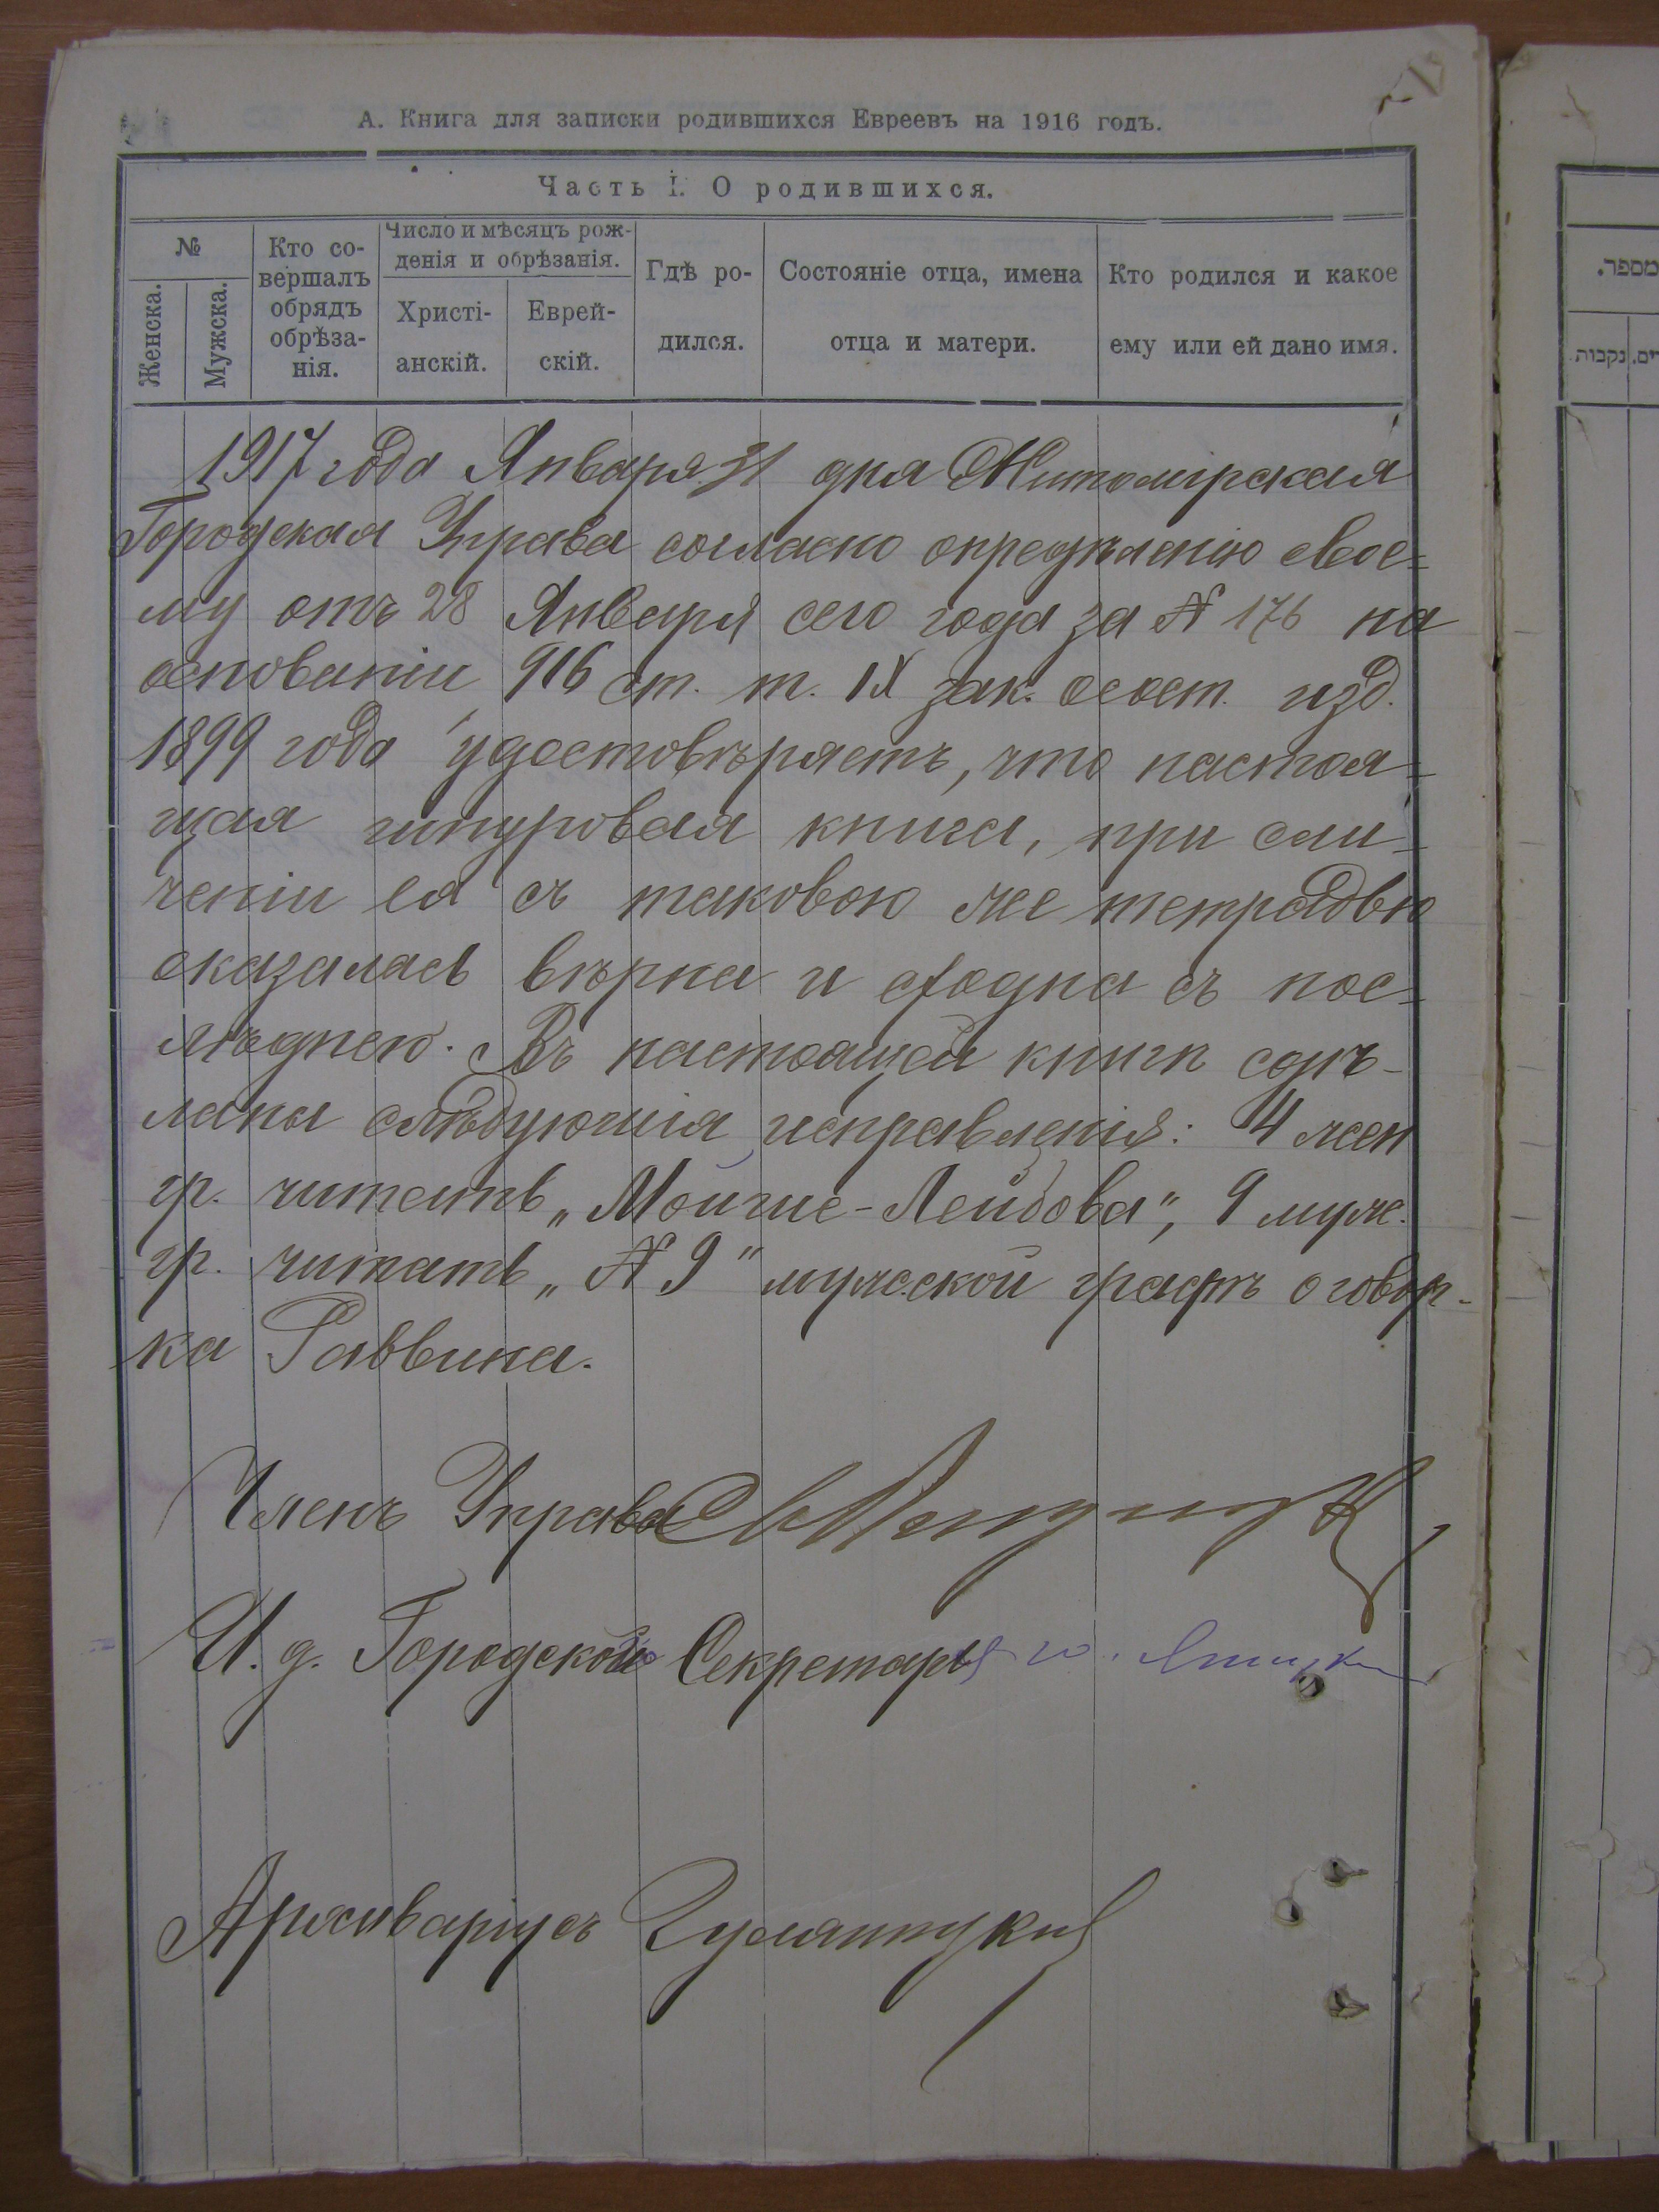 А. Книга для записки родившихся Евреевъ на 1916 годъ.
Часть I. О родившихся.
№
Женска.
Мужска.
Кто со-
вершалъ
обрядъ
обрѣза-
нія.
Число и мѣсяцъ рож-
денія и обрѣзанія.
Христі-
анскій.
Еврей-
скій.
Гдѣ ро-
дился.
Состояніе отца, имена
отца и матери.
Кто родился и какое
ему или ей дано имя.
1917 года Января 31 дня Житомірская
Городская Управа согласно опредѣленію свое-
му отъ 28 Января сего года за № 176 на
основаніи 916 ст. т. IX зак. о сост. изд.
1899 года удостовѣряетъ, что настоя-
щая шнуровая книга, при сли-
ченіи ея съ таковою же тетрадью
оказалась вѣрна и сходна съ пос-
лѣднею. Въ настоящей книгѣ сдѣ-
ланы слѣдующія исправленія: 4 жен
гр. читать „Мойше-Лейбова", 9 муж.
гр. читать „№ 9" мужской графѣ оговор-
ка Раввина.
Членъ Управы
И. д. Городского Секретаря
Архиваріусъ
מספר.
נקבות